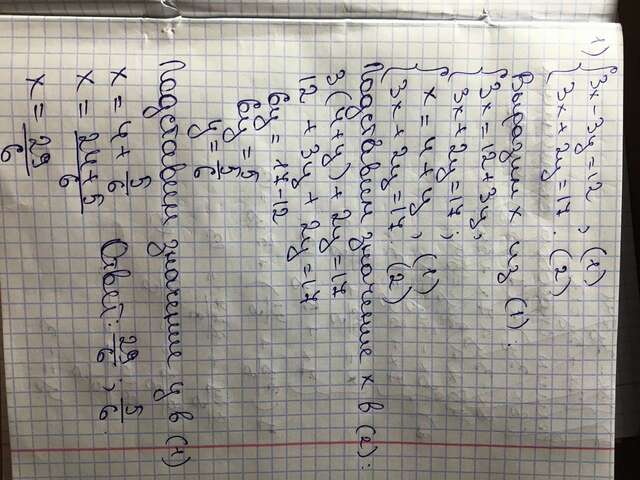 1) { 3x - 3y = 12, (1)
3x + 2y = 17. (2)
Выразим x из (1):
{ 3x = 12 + 3y,
3x + 2y = 17;
{ x = 4 + y, (1)
3x + 2y = 17. (2)
Подставим значение x в (2):
3(4 + y) + 2y = 17
12 + 3y + 2y = 17
6y = 17 - 12
6y = 5
y = 5/6
Подставим значение y в (1)
x = 4 + 5/6
x = 24 + 5/6
x = 29/6
Ответ: 29/6 ; 5/6